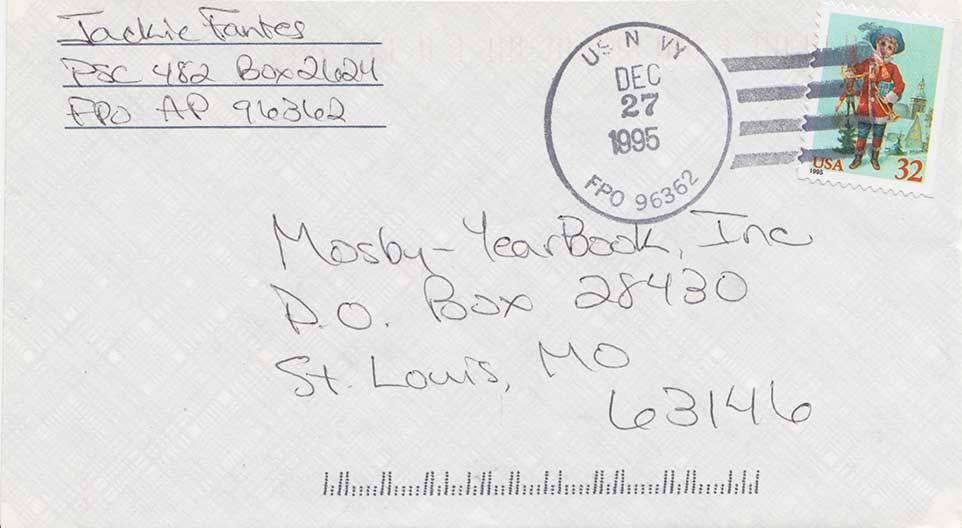 Jackie Fantes
PSC 482 Box 2624
FPO AP 96362
US N VY
DEC
27
1995
FPO 96362
USA
1995
32
Mosby-YearBook, Inc
P.O. Box 28430
St. Louis, MO
63146